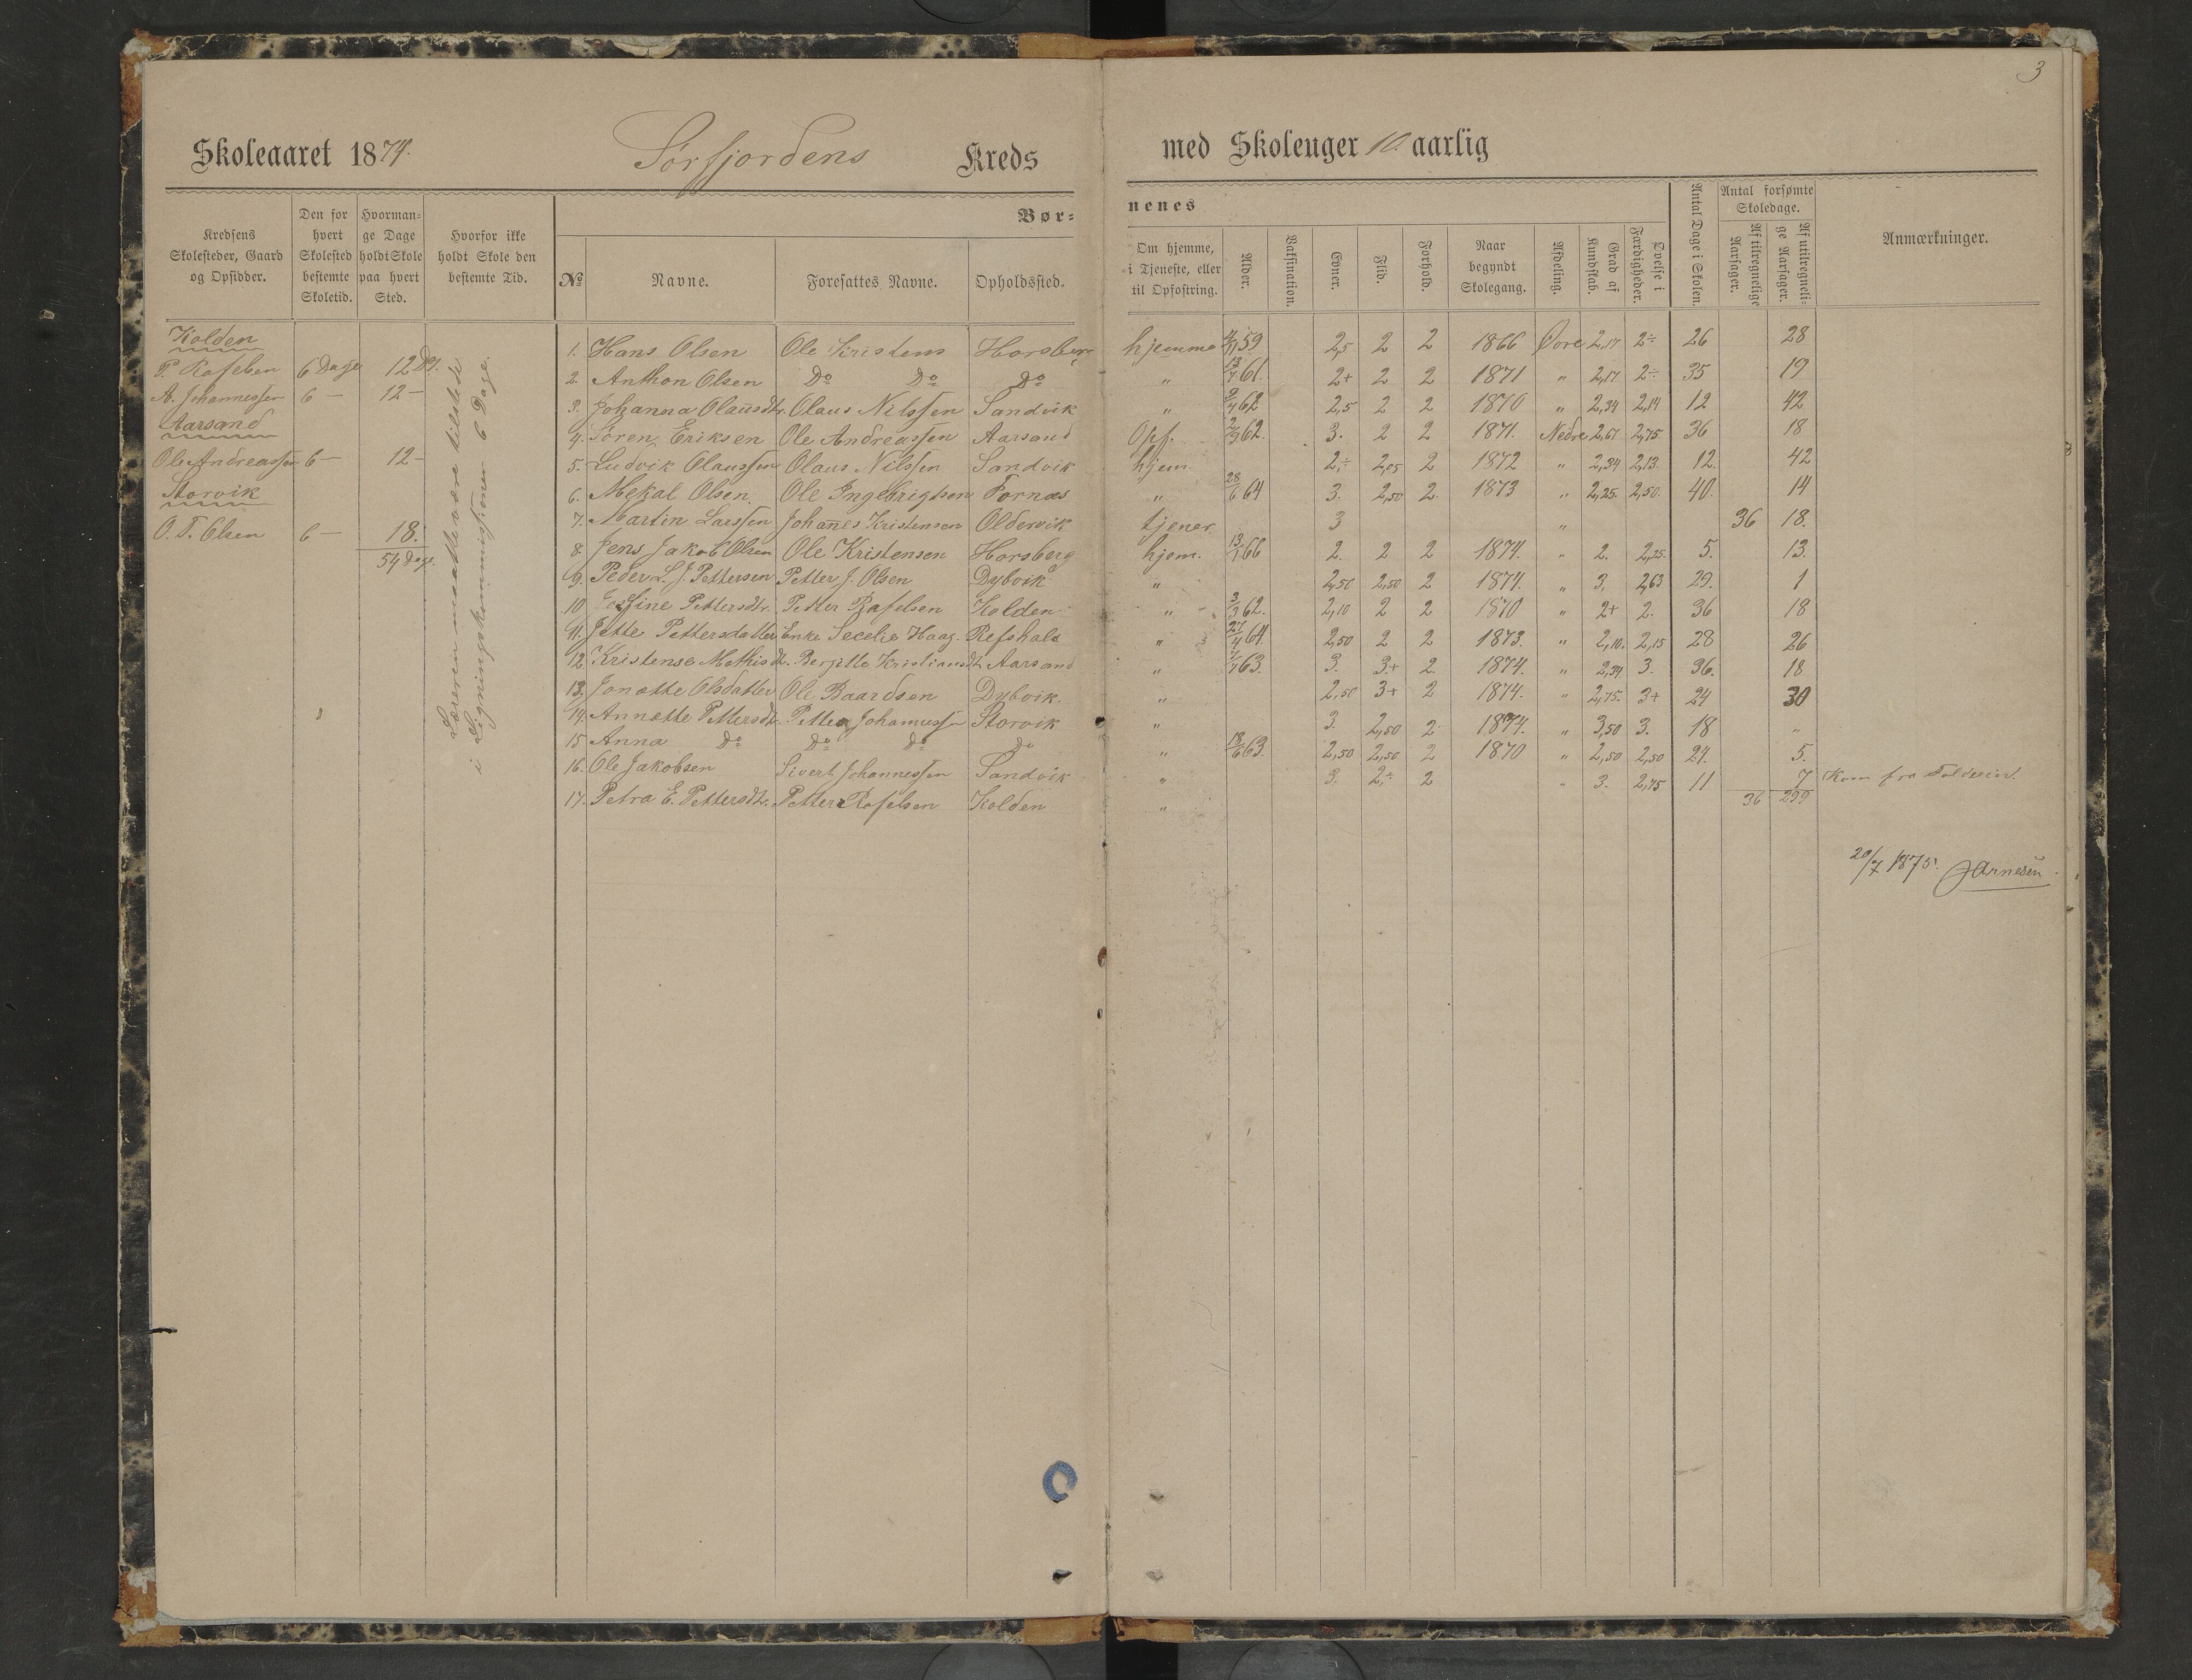 3
Skoleaaret 1874. Sörfjordens Kreds med Skoleuger 10 aarlig
Kredsens Skolesteder, Gaard og Opsidder.
Den for hvert Skolested bestemte Skoletid.
Hvormange Dage holdt Skole paa hvert Sted.
Hvorfor ikke holdt Skole den bestemte Tid.
Børnenes
№ Navne. Foresattes Navne. Opholdssted.
Om hjemme, i Tjeneste, eller til Opfostring.
Alder.
Vaksination.
Evner.
Flid.
Forhold.
Naar begyndt Skolegang.
Afdeling.
Grad af Kundskab.
Øvelse i Færdigheder.
Antal Dage i Skolen.
Antal forsømte Skoledage.
Af tilregnelige Aarsager.
Af utilregnelige Aarsager.
Anmærkninger.
Kolden
P. Rafelsen 6 Dage 12 Dg.
A. Johannessen 6 — 12 —
Aarsand
Ole Andreassen 6 — 12 —
Storvik
O. T. Olsen 6 — 18.
54 Dage.
Læreren maatte være tilstede
i Ligningskommissionen 6 Dage.
1. Hans Olsen Ole Kristens Horsberg hjemme 4/11 59 2,5 2 2 1866 Övre 2,17 2÷ 26 28
2. Anthon Olsen Do Do Do " 13/7 61. 2+ 2 2 1871 " 2,17 2÷ 35 19
3. Johanna Olausdtr. Olaus Nilssen Sandvik " 9/4 62 2,5 2 2 1870 " 2,34 2,14 12 42
4. Sören Eriksen Ole Andreassen Aarsand Opf. 2/9 62. 3. 2 2 1871. Nedre 2,67 2,75 36 18
5. Ludvik Olaussen Olaus Nilssen Sandvik hjem. 2,÷ 2,05 2 1872 " 2,34 2,13. 12. 42
6. Mekal Olsen. Ole Ingebrigtsen Fornæs " 28/6 64 3. 2,50 2. 1873 " 2,25. 2,50. 40. 14
7. Martin Larssen Johanes Kristensen Oldervik tjener 3 " 36 18.
8. Jens Jakob Olsen Ole Kristensen Horsberg hjem. 13/1 66 2. 2 2 1874. " 2. 2,25. 5. 13.
9. Peder L. J. Pettersen Petter J. Olsen Dybvik " 2,50 2,50 2 1874. " 3. 2,63 29. 1
10 Jessine Pettersdtr. Petter Rafelsen Kolden " 3/3 62. 2,10 2 2 1870 " 2+ 2. 36 18
11. Jette Pettersdatter Enke Secelie Haag. Refshals " 27/4 64. 2,50 2 2 1873. " 2,10. 2,15 28 26
12. Kristense Mathisdt. Berjitte Kristiansdt. Aarsand " 1/7 63. 3. 3+ 2. 1874. " 2,34 3. 36. 18
13. Jonætte Olsdatter Ole Baardsen Dybvik. " 2,50 3+ 2 1874. " 2,75. 3+ 24 30
14. Annætte Pettersdt. Petter Johannessen Storvik " 3. 2,50 2. 1874. " 3,50 3. 18 "
15 Anna Do Do Do Do " 18/6 63. 2,50 2,50 2 1870 " 2,50 2,50 24. 5.
16. Ole Jakobsen Sivert Johannessen Sandvik " 3. 2÷ 2 " 3. 2,75 11 7 Kom fra Foldereid.
17. Petra E. Pettersdt. Petter Rafelsen Kolden "
36 299
20/7 1875. JArnesen